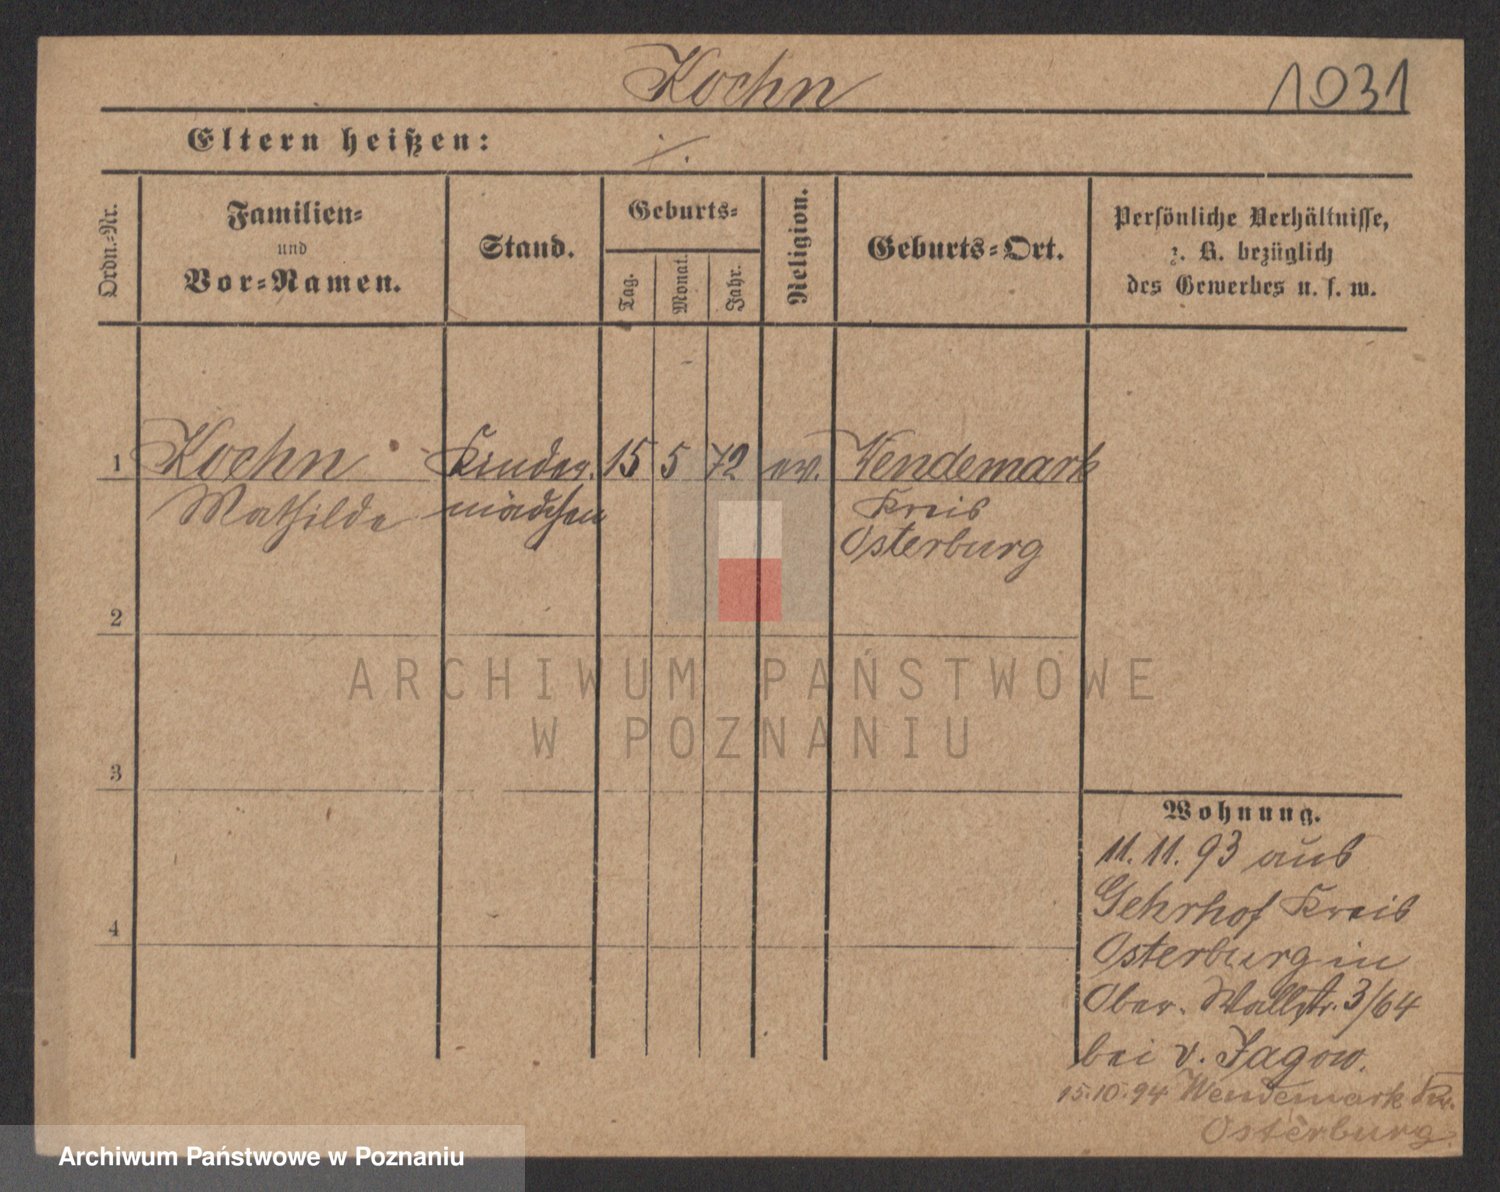 Kochn
1031
Eltern heißen:
./.
Ordn.-Nr.
Familien-
und
Vor-Namen.
Stand.
Geburts-
Tag.
Monat.
Jahr.
Religion.
Geburts-Ort.
Persönliche Verhältnisse,
z. B. bezüglich
des Gewerbes u. s. w.
1 Kochn Kinder- 15 5 72 ev. Wendemark
Mathilde mädchen Kreis
Osterburg
2
ARCHIWUM PAŃSTWOWE
W POZNANIU
3
Wohnung.
11. 11. 93 aus
Gehrhof Kreis
Osterburg in
Ober. Wallstr. 3/64
4
bei v. Jagow.
15.10.94 Wendemark Kr.
Osterburg
Archiwum Państwowe w Poznaniu